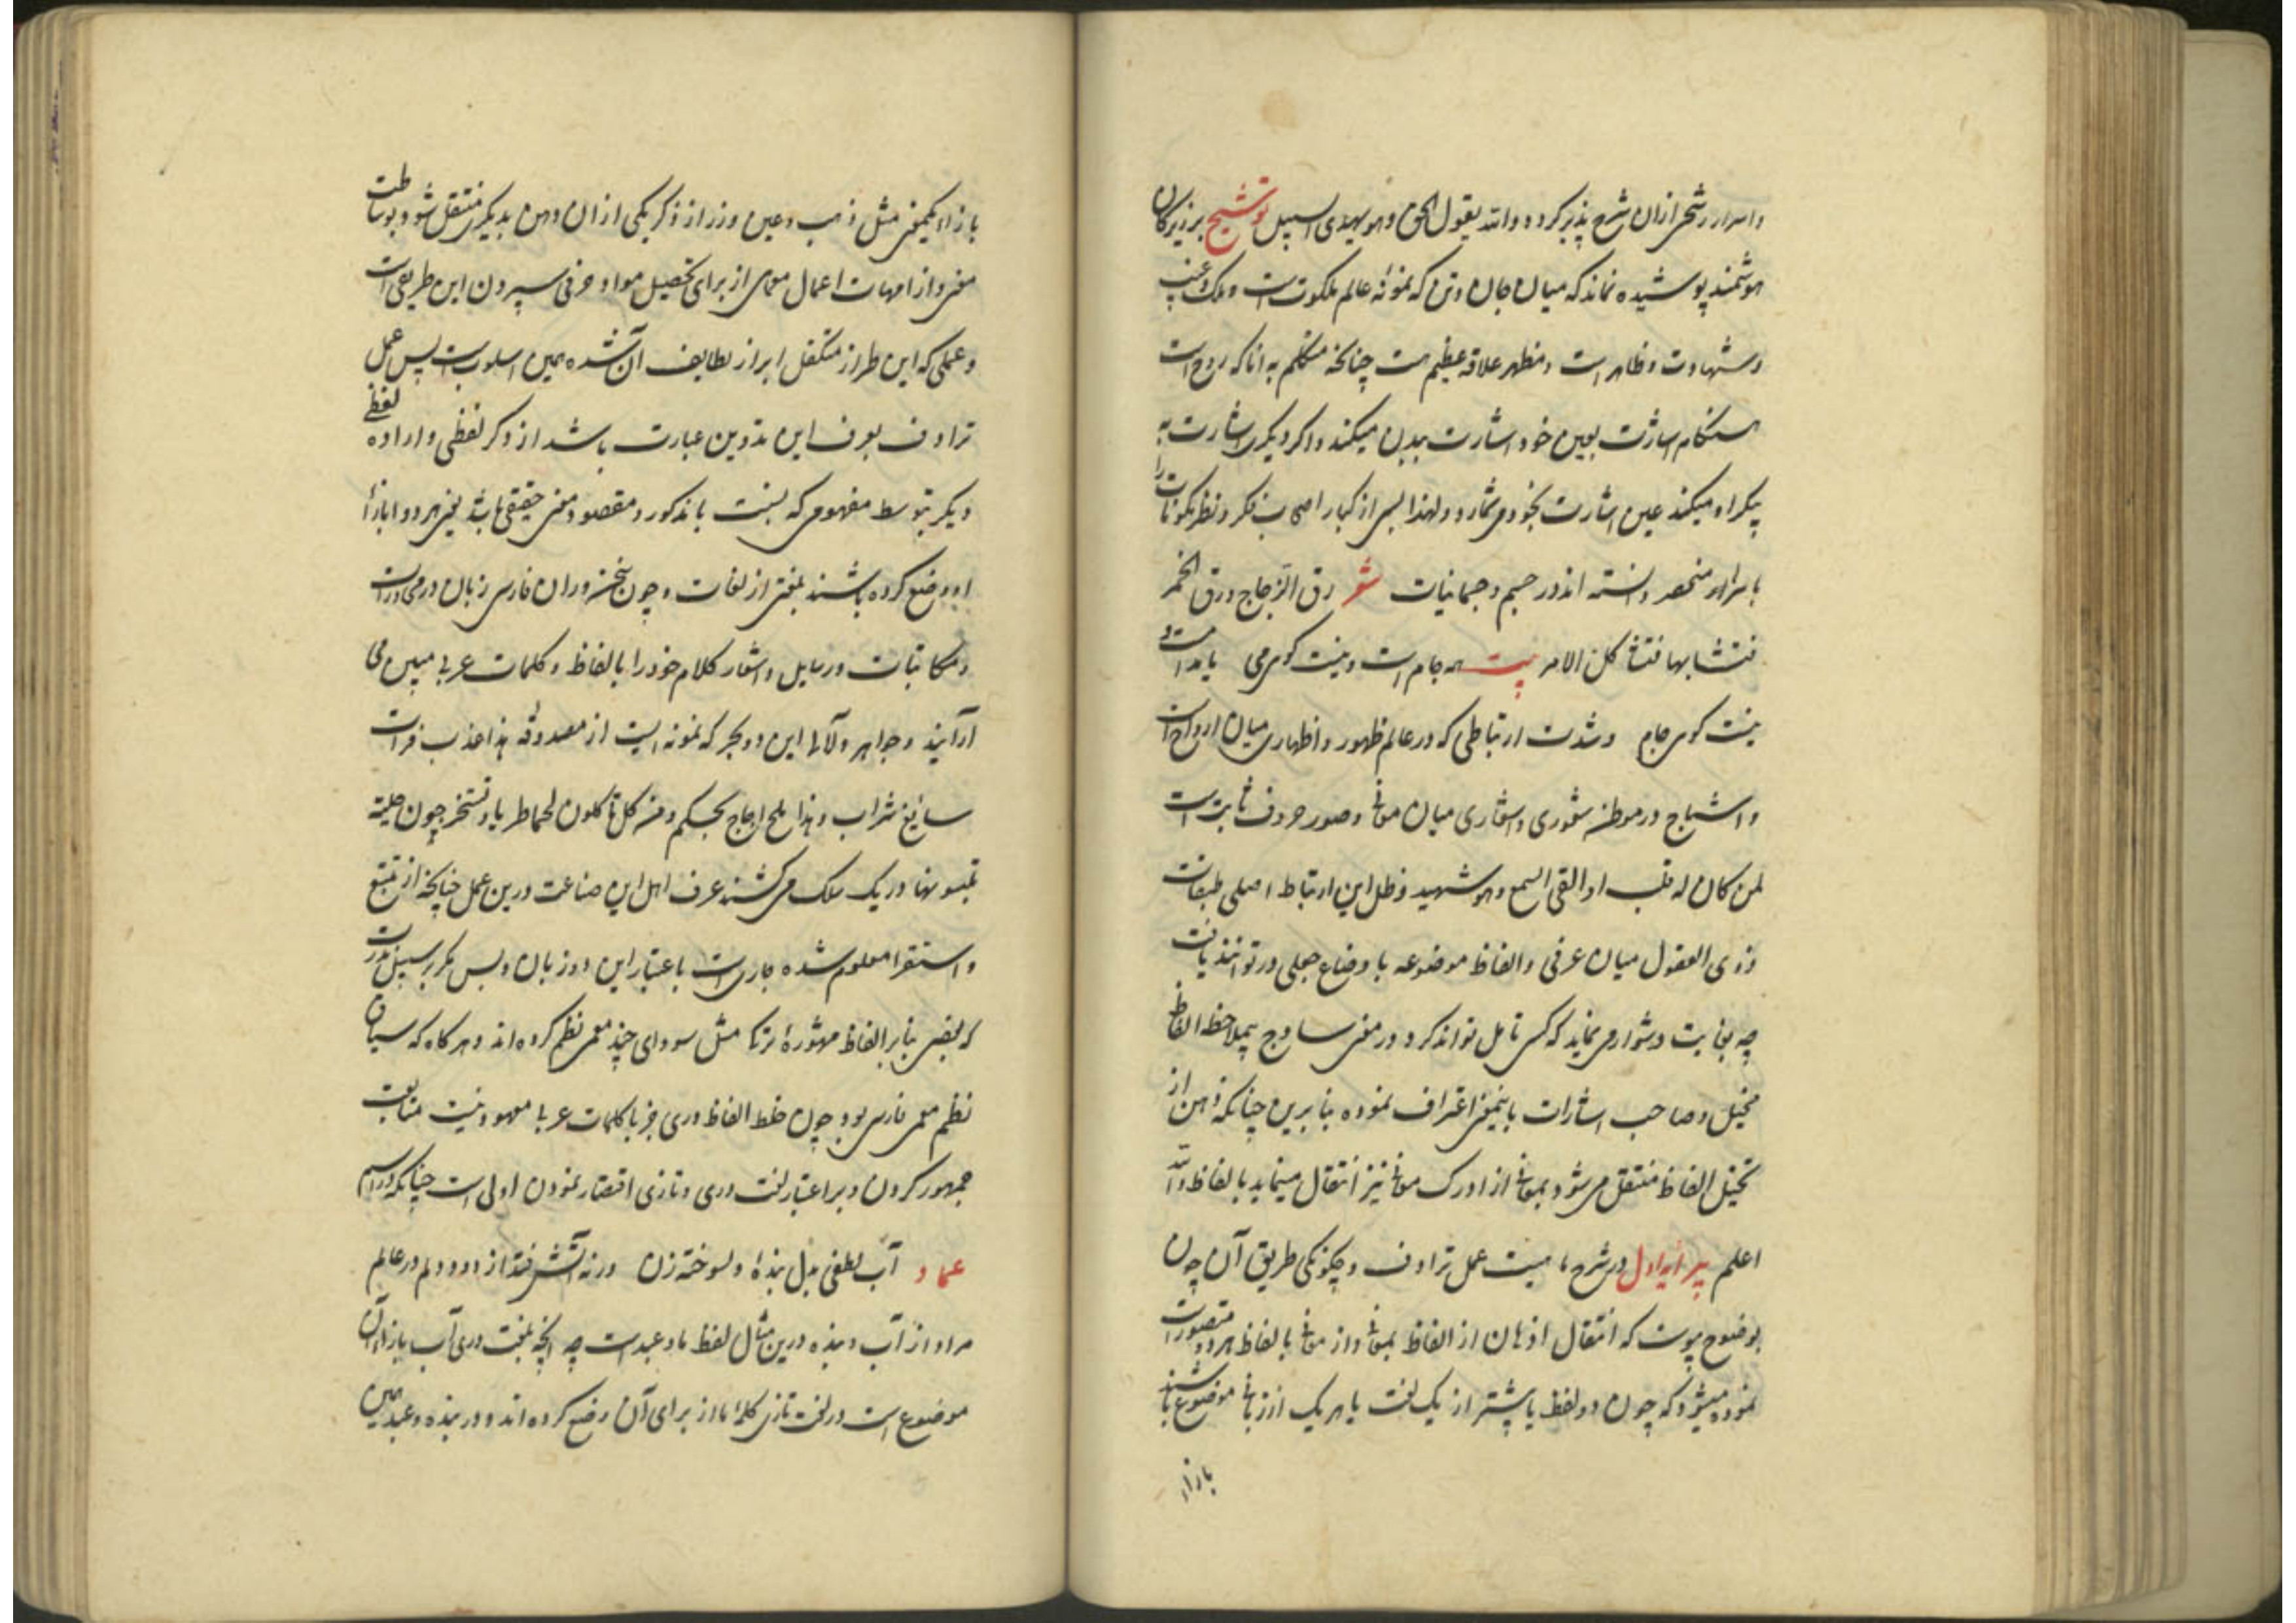 واسرار رشحی ازان شرح پذیر کرده والله یقول الحق وهو یهدی السبیل توشیح بر زیرکان
هوشمند پوشیده نماند که میان جان وتن که نمونهٔ عالم ملکوتست و ملک وغیب
وشهادت و ظاهر است ومظهر علاقه عظیم هست چنانچه متکلم به انا که روح است
هنگام اشارت بعین خود اشارت ببدن میکند واکر دیکری اشارت به
پیکر او میکند عین اشارت بخود می شمارد ولهذا بسی از کبار اصحاب فکر ونظر مکونات را
باسرها منحصر دانسته اند در جسم وجسمانیات شعر رق الزجاج ورق الخمر
فتشابها فتشاکل الامر بیت همه جام است ونیست کوی می یا مدامست و
نیست کوی جام وشدت ارتباطی که در عالم ظهور واظهاری میان ارواح است
واشباح در موطن شعوری واشعاری میان معانی وصور حروف ثابت است
لمن کان له قلب او القی السمع وهو شهید وظل این ارتباط اصلی طبقات
ذوی العقول میان عرفی والفاظ موضوعه باوضاع جعلی در توانند یافت
چه بغایت دشوار می نماید که کسی تامل تواند کرد در معنی ساذج بیملاحظه الفاظ
مخیل وصاحب اشارات باینمعنی اعتراف نموده بنابرین چنانکه ذهن از
تخیل الفاظ منتقل می شود بمعانی از ادراک معانی نیز انتقال مینماید بالفاظ والله
اعلم پیرایه اول در شرح ماهیت عمل ترادف وچکونکی طریق آن چون
بوضوح پیوست که انتقال اذهان از الفاظ بمعانی واز معانی بالفاظ هر دو متصور است
نموده میشود که چون دو لفظ یا پیشتر از یک لغت یا هر یک از زبانی موضوع باشند
بازاء
بازاء یکمعنی مثل ذهب وعین وزر از ذکر یکی ازان ذهن بدیکری منتقل شود بوساطت
معنی واز امهات اعمال معمای از برای تحصیل مواد حرفی سپردن این طریق است
وعملی که این طراز متکفل ابراز لطایف آن شده همین اسلوبست پس عمل
ترادف بعرف این تدوین عبارت باشد از ذکر لفظی واراده لفظی
دیکر بتوسط مفهومی که نسبت با مذکور ومقصود معنی حقیقی باشد یعنی هر دو را بازاء
او وضع کرده باشند بلغتی از لغات وچون سخنوران فارسی زبان در محاورات
ومکاتبات ورسایل واشعار کلام خود را بالفاظ وکلمات عربی مبین می
آرایند وجواهر ولآلی این دو بحر که نمونه ایست از مصدوقه هذا عذب فرات
سائغ شرابه وهذا ملح اجاج بحکم ومن کل تاکلون لحما طریا وتستخرجون حلیة
تلبسونها در یک سلک می کشند عرف اهل این صناعت درین عمل چنانچه از تتبع
واستقرا معلوم شده جاری است باعتبار این دو زبان وبس مکر بر سبیل ندرت
که بعضی بنابر الفاظ مشهورهٔ ترکی مثل سو وای چند معمی نظم کرده اند وهر کاه که سیاق
نظم معمی فارسی بود چون خلط الفاظ دری جز با کلمات عربی معهود نیست متابعت
جمهور کردن وبر اعتبار لغت دری وتازی اقتصار نمودن اولی است چنانکه در اسم
عماد آب لطفی بدل بندهٔ دلسوخته زن ورنه آتش فتد از دود دلم در عالم
مراد از آب وبنده درین مثال لفظ ما وعبد است چه آنچه بلغت دری آب بازاء آن
موضوع است در لغت تازی کلمه ما از برای آن وضع کرده اند ودر بنده وعبد همین